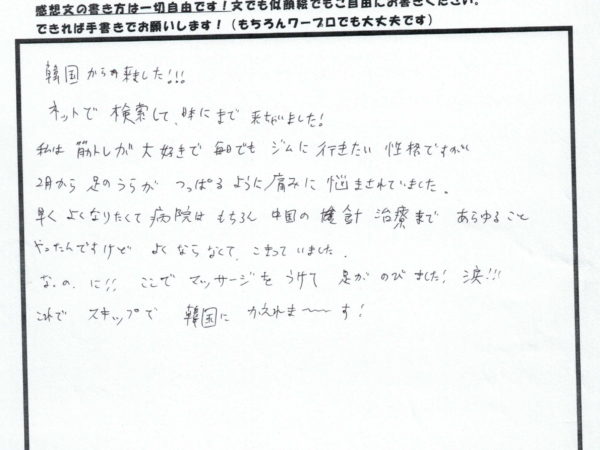 感想文の書き方は一切自由です！文でも似顔絵でもご自由にお書きください。
できれば手書きでお願いします！（もちろんワープロでも大丈夫です）
韓国から来ました!!!
ネットで検索して、まで来ちゃいました!
私は筋トレが大好きで毎日でもジムに行きたい性格ですが
2月から足のうらがつっぱるように痛みに悩まされていました。
早くよくなりたくて病院はもちろん中国の針治療まであらゆること
やったんですけどよくならなくて、こまっていました。
な.の.に!! ここでマッサージをうけて足がのびました! 涙!!!
これでスキップで韓国にかえれま〜〜す!